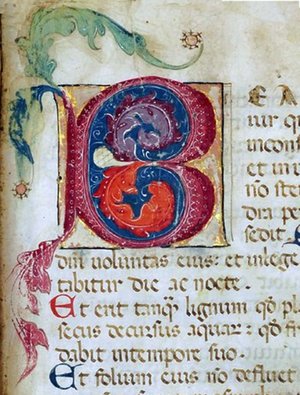 BEA
uir qu
incons
et in u
nō ste
dra pe
sedit.
dn̄i uoluntas eius: et in lege
tabitur die ac nocte.
Et erit tanq̄ lignum qd̄ pl
secus decursus aquar: qd̄ f
dabit intempore suo.
Et folium eius nō defluet